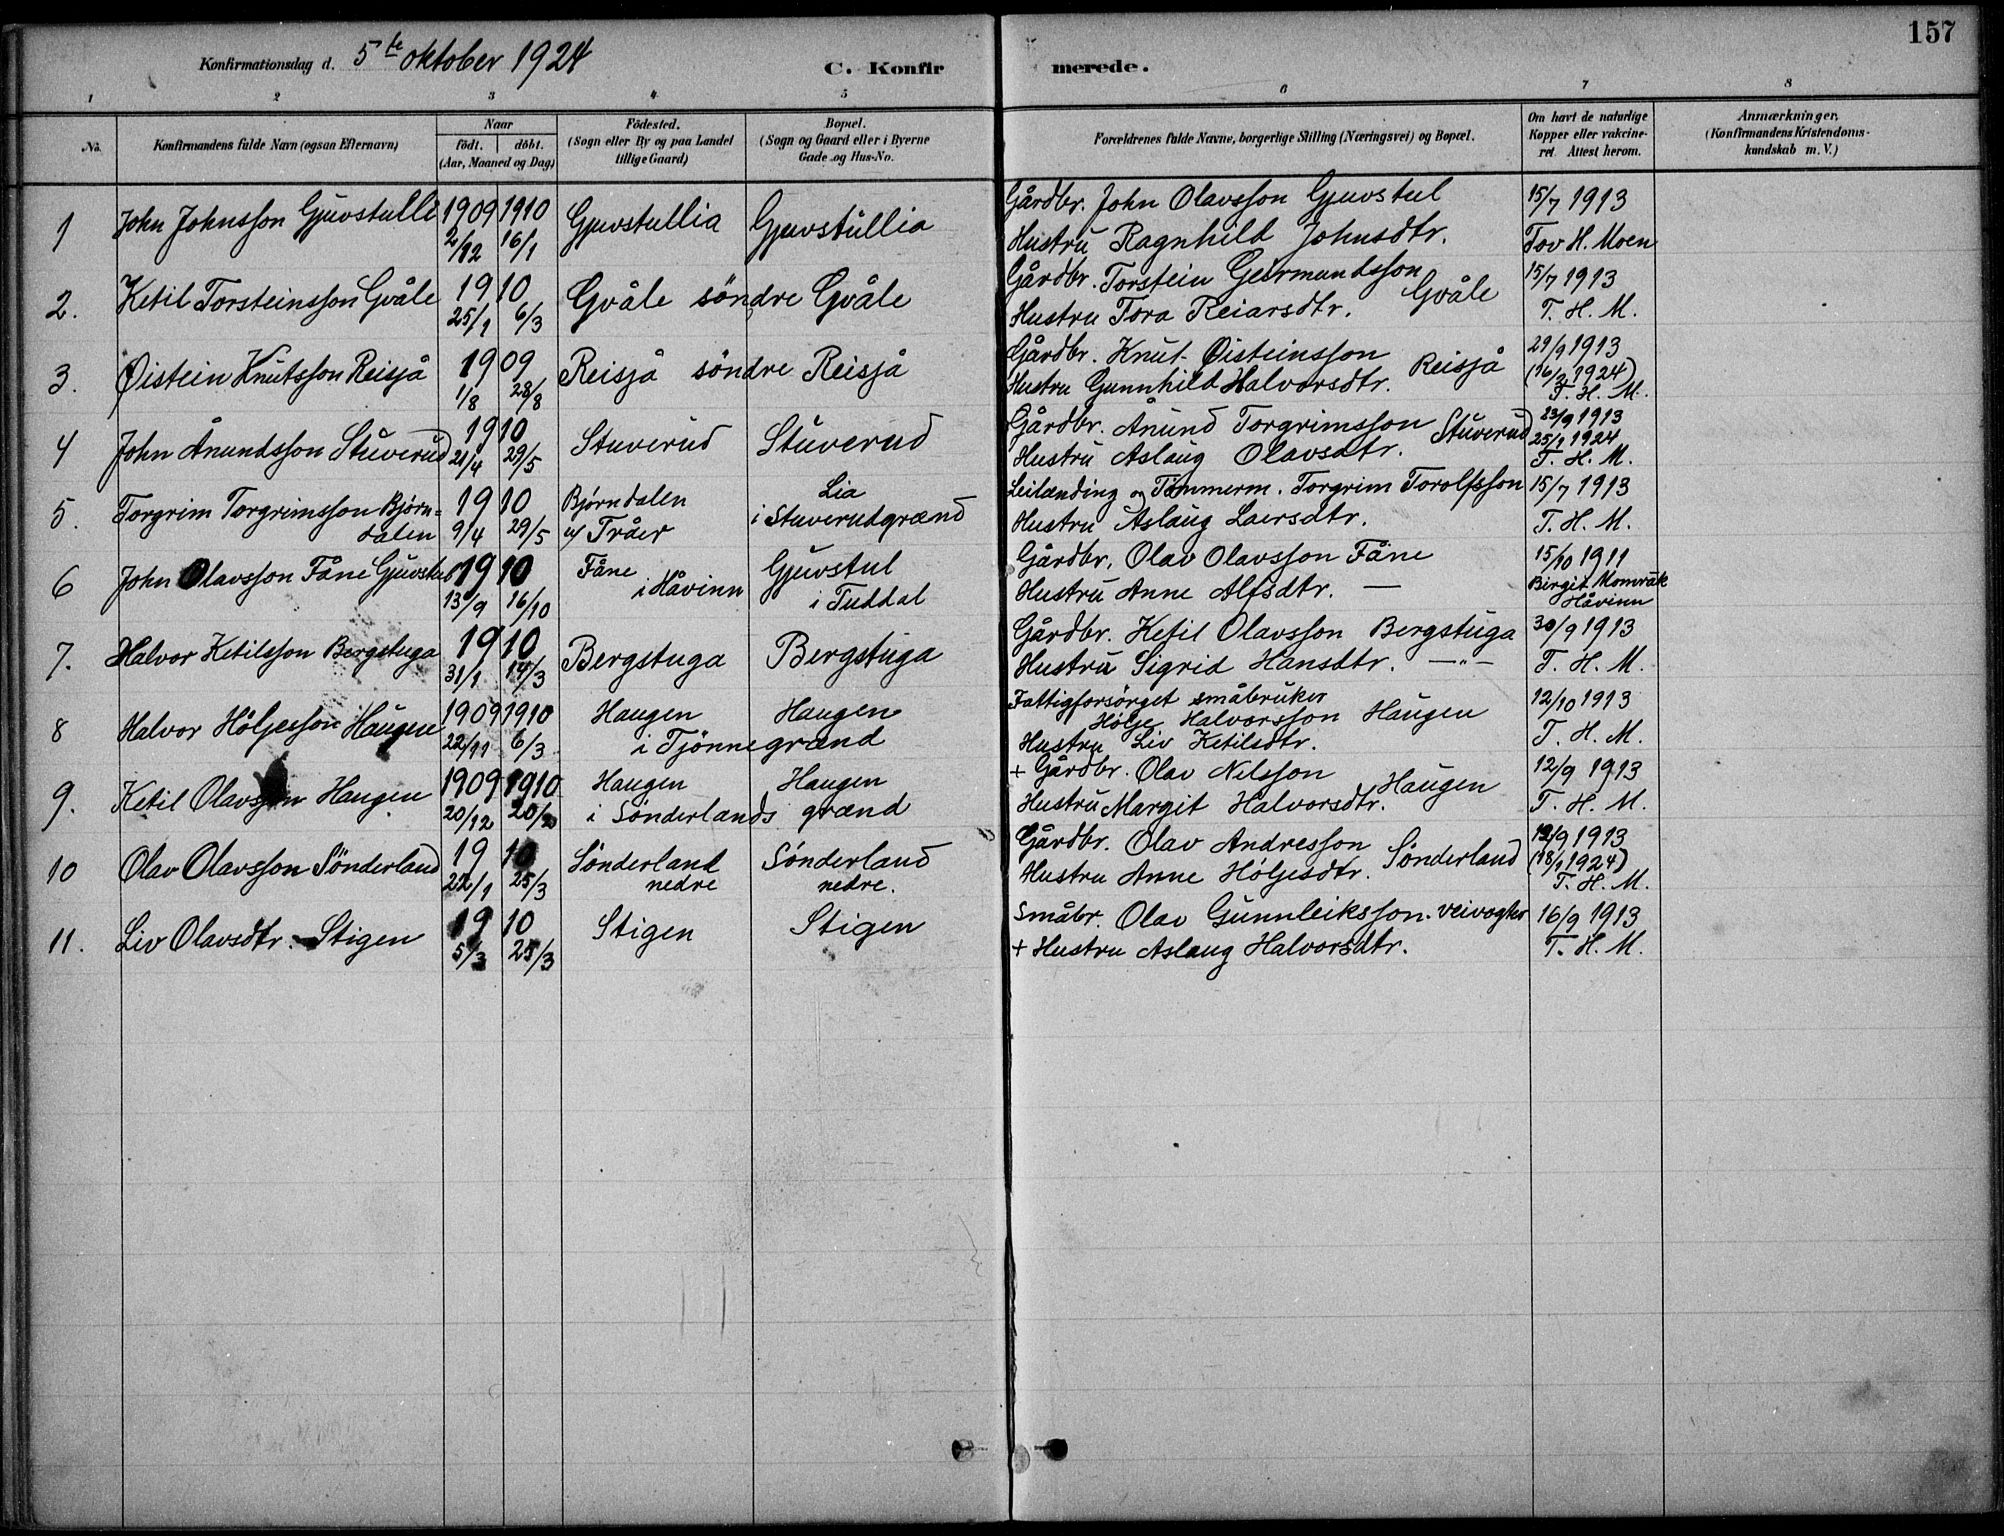 157
Konfirmationsdag d. 5te oktober 1924
C. Konfirmerede.
1 2 3 4 5 6 7 8
No. Konfirmandens fulde Navn (ogsaa Efternavn)
Naar födt. döbt. (Aar, Maaned og Dag)
Födested. (Sogn eller By og paa Landet tillige Gaard)
Bopæl. (Sogn og Gaard eller i Byerne Gade og Hus-No.
Forældrenes fulde Navne, borgerlige Stilling (Næringsvei) og Bopæl.
Om havt de naturlige Kopper eller vakcineret. Attest herom.
Anmærkninger, (Konfirmandens Kristendomskundskab m. V.)
1 John Johnsson Gjuvstulli 1909 1910 Gjuvstullia Gjuvstullia Gårdbr. John Olavsson Gjuvstul 15/7 1913
2/12 16/1 Hustru Ragnhild Johnsdtr. Tov H. Moen
2. Ketil Torsteinsson Gvåle 1910 Gvåle söndre Gvåle Gårdbr. Torstein Germundsson Gvåle 15/7 1913
25/1 6/3 Hustru Tora Reiarsdtr. T. H. M.
3. Øistein Knutsson Reisjå 1909 Reisjå söndre Reisjå Gårdbr. Knut Øisteinsson Reisjå 29/9 1913
1/8 28/8 Hustru Gunnhild Halvorsdtr. (16/2 1924)
T. H. M.
4 John Ånundsson Stuverud 1910 Stuverud Stuverud Gårdbr. Ånund Torgrimsson Stuverud 23/9 1913
21/4 29/5 Hustru Aslaug Olavsdtr. 25/1 1924
T. H. M.
5. Torgrim Torgrimsson Bjørn= 1910 Bjørndalen Lia Leilænding og Tømmerm. Torgrim Torolfsson 15/7 1913
dalen 9/4 29/5 u/ Tråer i Stuverudgrænd Hustru Aslaug Laersdtr. T. H. M.
6 John Olavsson Fåne Gjuvstul 1910 Fåne Gjuvstul Gårdbr. Olav Olavsson Fåne 15/10 1911
13/9 16/10 i Håvinn i Tuddal Hustru Anne Alfsdtr. — Birgit Momrak
Håvinn
7. Halvor Ketilsson Bergstuga 1910 Bergstuga Bergstuga Gårdbr. Ketil Olavsson Bergstuga 30/9 1913
31/1 14/3 Hustru Sigrid Hansdtr. —"— T. H. M.
8 Halvor Höljesson Haugen 1909 1910 Haugen Haugen Fattigforsörget småbruker 12/10 1913
Hölje Halvorsson Haugen
22/11 6/3 i Tjönnegrænd Hustru Liv Ketilsdtr. T. H. M.
9. Ketil Olavsson Haugen 1909 1910 Haugen Haugen + Gårdbr. Olav Nilsson Haugen 12/9 1913
20/12 20/2 i Sønderlands grænd Hustru Margit Halvorsdtr. T. H. M.
10 Olav Olavsson Sönderland 1910 Sönderland Sønderland Gårdbr. Olav Andresson Sønderland 12/9 1913
22/1 25/3 nedre nedre. Hustru Anne Höljesdtr. (18/1 1924)
T. H. M.
11. Liv Olavsdtr. Stigen 1910 Stigen Stigen Småbr. Olav Gunnleiksson. veivogter 16/9 1913
5/3 25/3 + Hustru Aslaug Halvorsdtr. T. H. M.